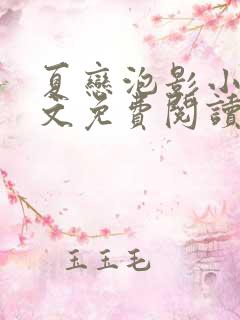 夏戀泡影小
文免費閱讀
玉玉毛